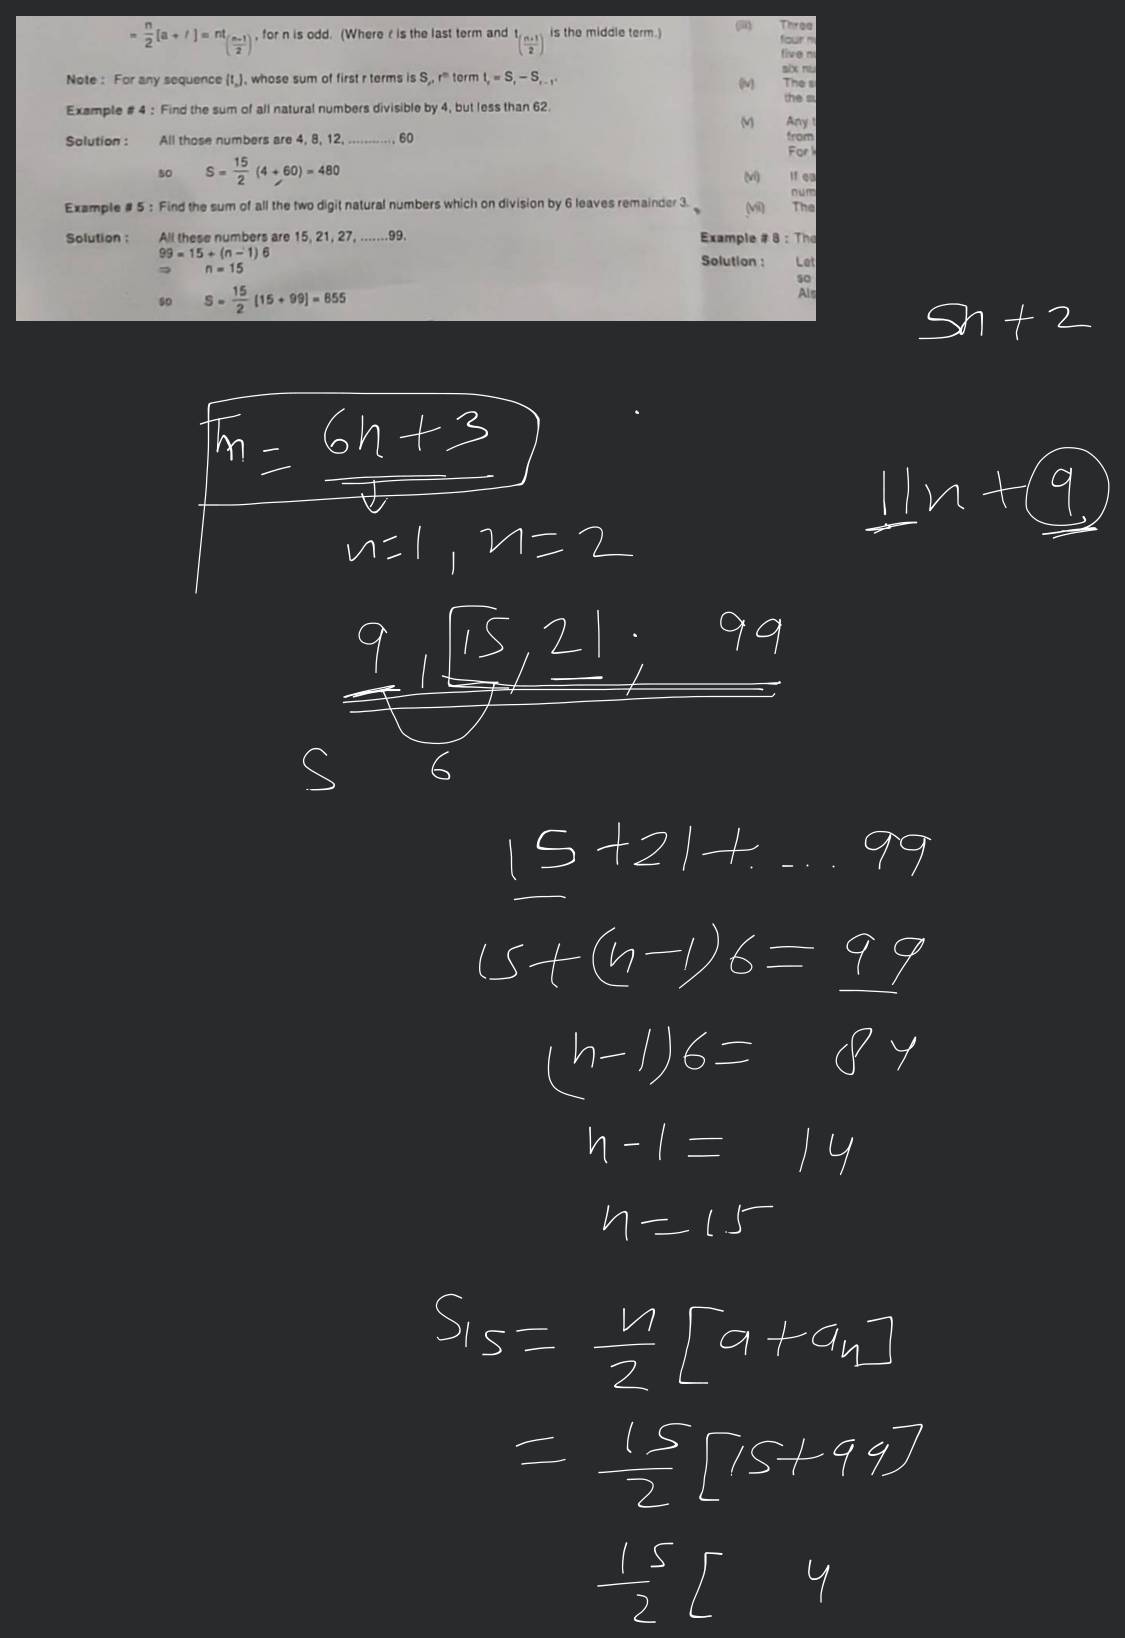 = n/2 [a + ℓ] = nt((n+1)/2), for n is odd. (Where ℓ is the last term and t((n+1)/2) is the middle term.)
Note : For any sequence {tn}, whose sum of first r terms is Sr, rth term tr = Sr – Sr–1.
Example # 4 : Find the sum of all natural numbers divisible by 4, but less than 62.
Solution : All those numbers are 4, 8, 12, ..........., 60
so S = 15/2 (4 + 60) = 480
Example # 5 : Find the sum of all the two digit natural numbers which on division by 6 leaves remainder 3.
Solution : All these numbers are 15, 21, 27, .......99.
99 = 15 + (n – 1) 6
⇒ n = 15
so S = 15/2 [15 + 99] = 855
(iii) Three
four
five
six
(iv) The
the
(v) Any
from
For
(vi) If
(vii) The
Example # 8 : The
Solution : Let
so
5n + 2
Tn = 6n + 3
11n + 9
n=1, n=2
9, 15, 21, 99
S 6
15 + 21 + .... 99
15 + (n-1)6 = 99
(n-1)6 = 84
n-1 = 14
n = 15
S15 = n/2 [a + an]
= 15/2 [15 + 99]
15/2 [ 4